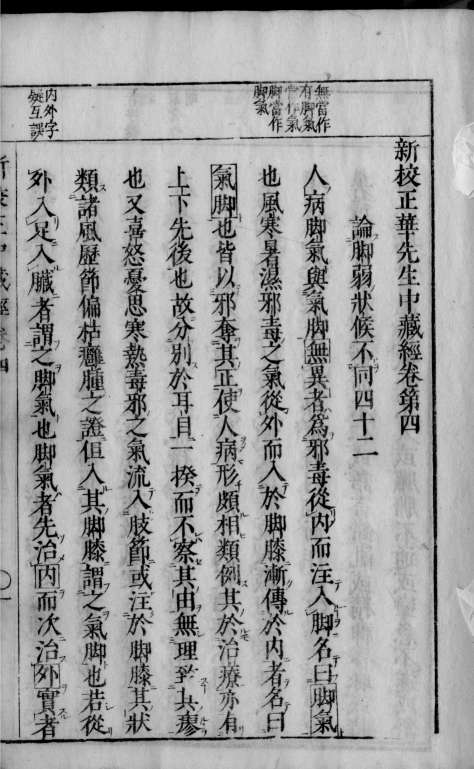 無當作
有脚氣
當作氣
脚當作
脚氣
内外字
疑互誤
新校正華先生中藏經卷第四
論脚弱狀候不同四十二
人病脚氣與氣脚無異者爲邪毒從内而注入脚名曰脚氣
也風寒暑濕邪毒之氣從外而入於脚膝漸傳於内者名曰
氣脚也皆以邪奪其正使人病形頗相類例其於治療亦有
上下先後也故分別於耳目一揆而不察其由無理致其瘳
也又喜怒憂思寒熱毒邪之氣流入肢節或注於脚膝其狀
類諸風歷節偏枯癰腫之證但入其脚膝謂之氣脚也若從
外入足入臟者謂之脚氣也脚氣者先治内而次治外實者